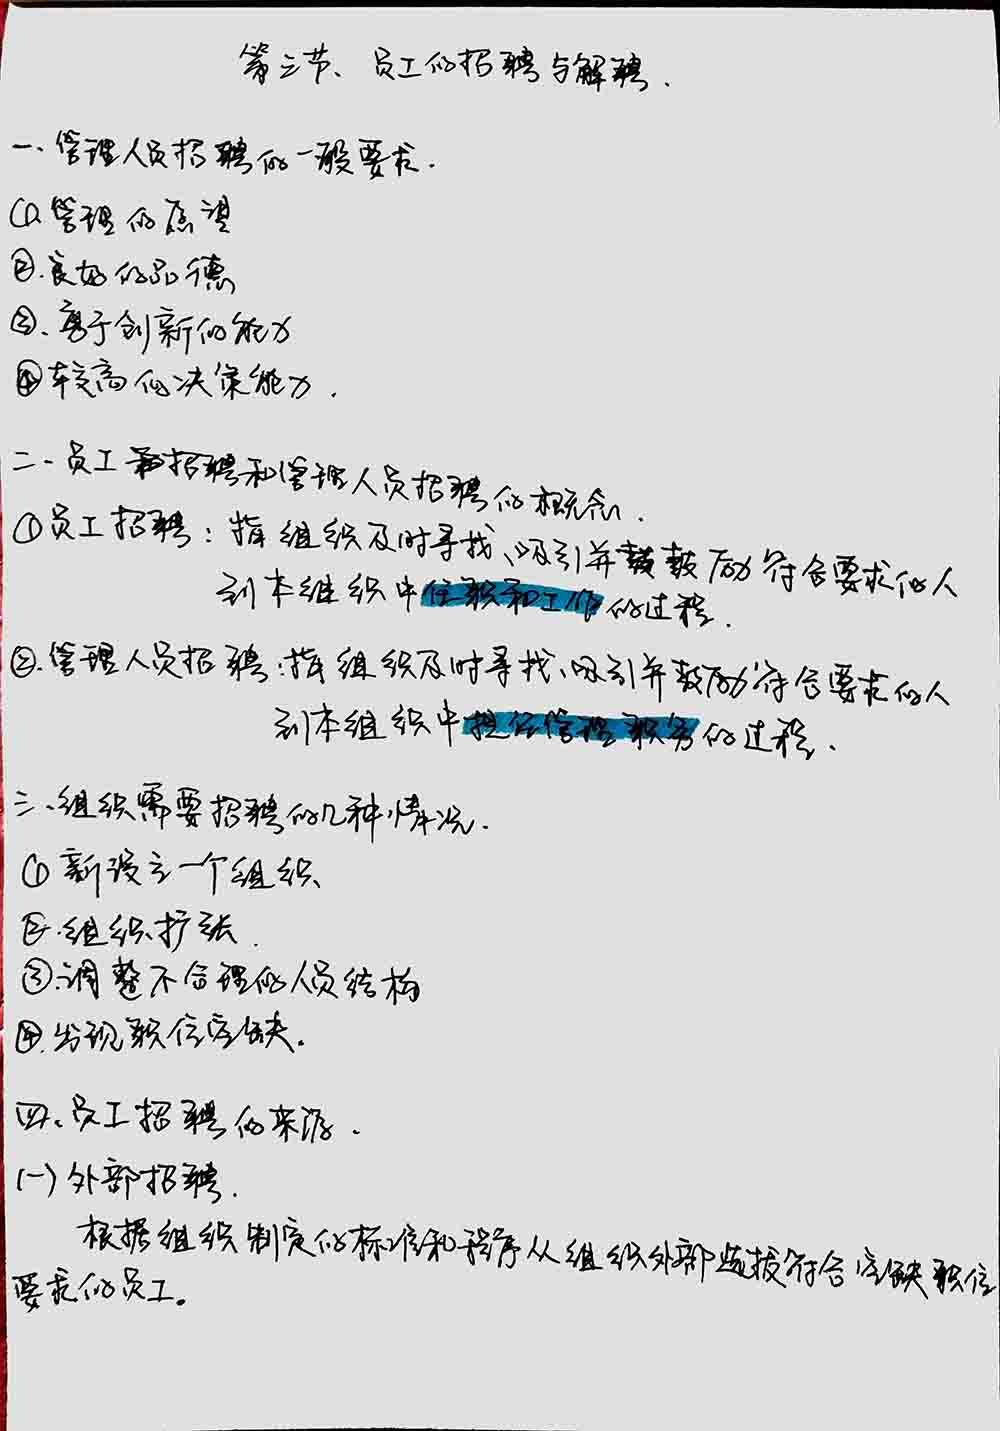 第三节、员工的招聘与解聘.
一、管理人员招聘的一般要求.
①管理的愿望
②.良好的品德
③、勇于创新的能力
④较高的决策能力.
二、员工招聘和管理人员招聘的概念.
①员工招聘: 指组织及时寻找、吸引并鼓励符合要求的人
到本组织中任职和工作的过程.
②.管理人员招聘:指组织及时寻找、吸引并鼓励符合要求的人
到本组织中担任管理职务的过程.
三、组织需要招聘的几种情况.
① 新设立一个组织
②.组织扩张.
③.调整不合理的人员结构
④.出现职位空缺。
四、员工招聘的来源.
(一)外部招聘.
根据组织制定的标准和程序从组织外部选拔符合空缺职位
要求的员工。